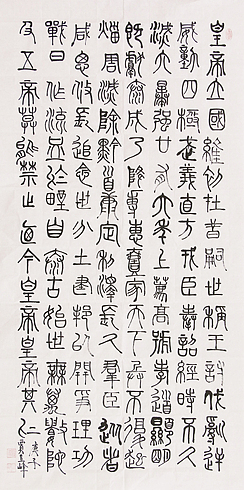 皇帝立國維初在昔嗣世稱王討伐亂逆
威動四極武義直方戎臣奉詔經時不久
滅六暴強廿有六年上薦高號孝道顯明
既獻泰成乃降專惠家天下兵不復起
滅除黔首康定利澤長久群臣從者
咸思攸長追念世分土建邦以開爭理功
戰日作流血於野自泰古始世無萬數陀
及五帝莫能禁止乃今皇帝皇帝其仁